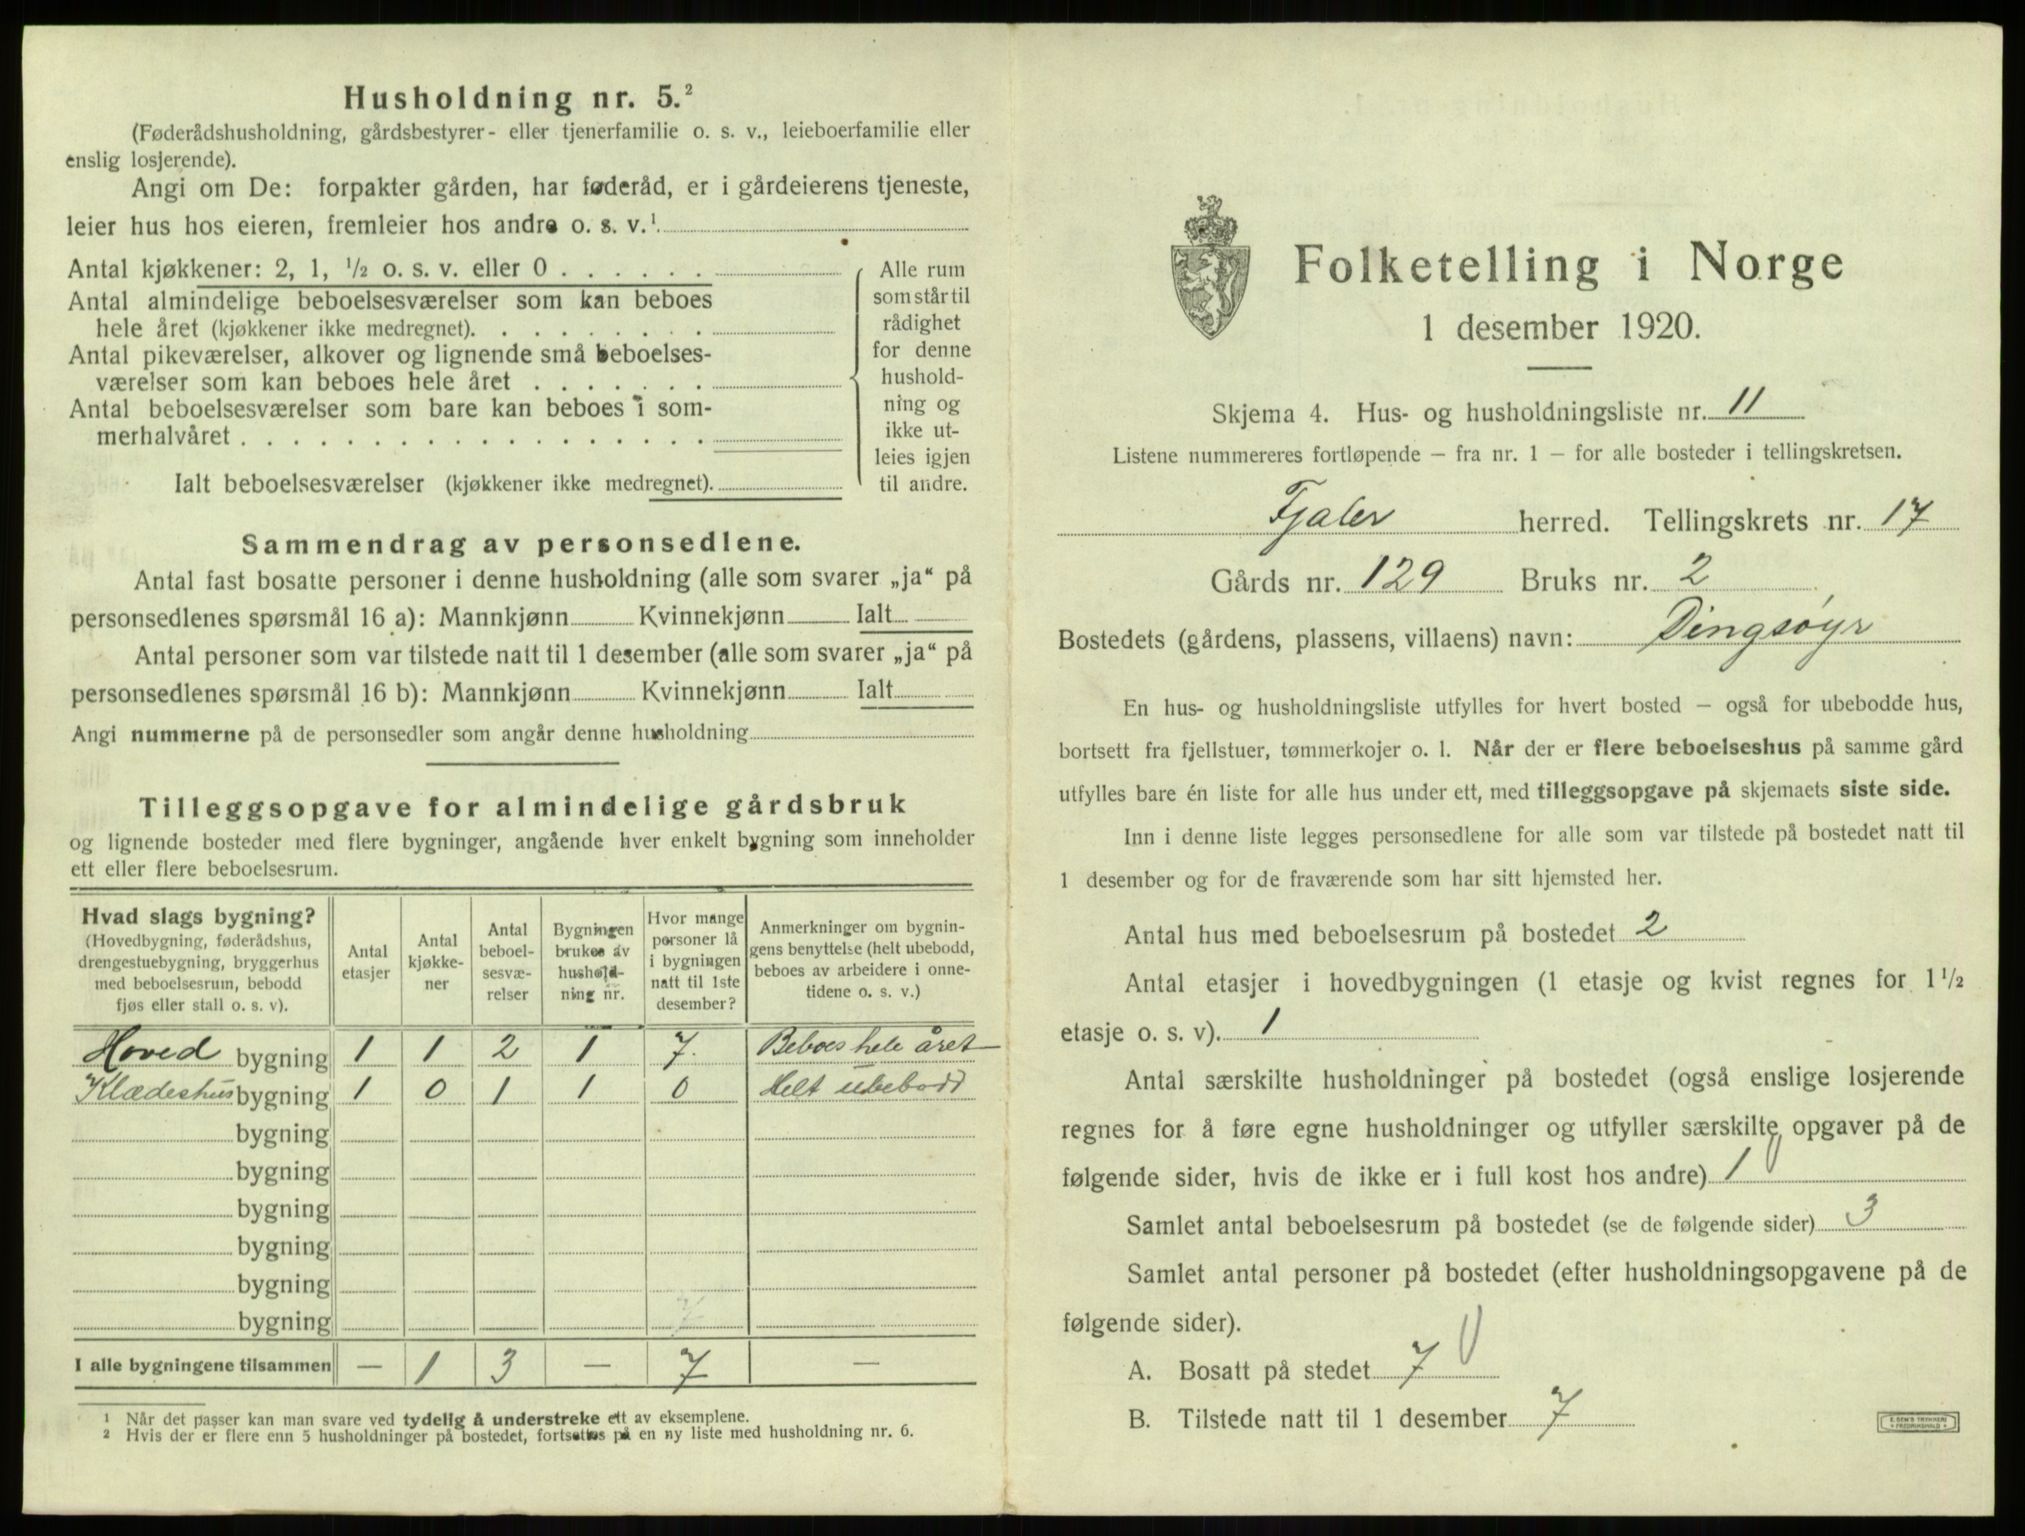 Husholdning nr. 5.²
(Føderådshusholdning, gårdsbestyrer- eller tjenerfamilie o. s. v., leieboerfamilie eller
enslig losjerende).
Angi om De: forpakter gården, har føderåd, er i gårdeierens tjeneste,
leier hus hos eieren, fremleier hos andre o. s. v.¹
Antal kjøkkener: 2, 1, ½ o. s. v. eller 0 . . . . . .
Antal almindelige beboelsesværelser som kan beboes
hele året (kjøkkener ikke medregnet). . . . . . . . .
Antal pikeværelser, alkover og lignende små beboelses-
værelser som kan beboes hele året . . . . . . .
Antal beboelsesværelser som bare kan beboes i som-
merhalvåret . . . . . . . . . . . . . . . . . .
Ialt beboelsesværelser (kjøkkener ikke medregnet).
Alle rum
som står til
rådighet
for denne
hushold-
ning og
ikke ut-
leies igjen
til andre.
Sammendrag av personsedlene.
Antal fast bosatte personer i denne husholdning (alle som svarer „ja“ på
personsedlenes spørsmål 16 a): Mannkjønn Kvinnekjønn Ialt
Antal personer som var tilstede natt til 1 desember (alle som svarer „ja“ på
personsedlenes spørsmål 16 b): Mannkjønn Kvinnekjønn Ialt
Angi nummerne på de personsedler som angår denne husholdning
Tilleggsopgave for almindelige gårdsbruk
og lignende bosteder med flere bygninger, angående hver enkelt bygning som inneholder
ett eller flere beboelsesrum.
Hvad slags bygning?
(Hovedbygning, føderådshus,
drengestuebygning, bryggerhus
med beboelsesrum, bebodd
fjøs eller stall o. s. v).
Antal
etasjer
Antal
kjøkke-
ner
Antal
beboel-
sesvæ-
relser
Bygningen
brukes av
hushold-
ning nr.
Hvor mange
personer lå
i bygningen
natt til 1ste
desember?
Anmerkninger om bygnin-
gens benyttelse (helt ubebodd,
beboes av arbeidere i onne-
tidene o. s. v.)
Hoved bygning 1 1 2 1 7. Beboes hele året
Klædeshus bygning 1 0 1 1 0 Helt ubebodd
bygning
bygning
bygning
bygning
bygning
bygning 7
I alle bygningene tilsammen — 1 3 — 7 —
¹ Når det passer kan man svare ved tydelig å understreke ett av eksemplene.
² Hvis der er flere enn 5 husholdninger på bostedet, fortsettes på en ny liste med husholdning nr. 6.
Folketelling i Norge
1 desember 1920.
Skjema 4. Hus- og husholdningsliste nr. 11
Listene nummereres fortløpende — fra nr. 1 — for alle bosteder i tellingskretsen.
Fjaler herred. Tellingskrets nr. 17
Gårds nr. 129 Bruks nr. 2
Bostedets (gårdens, plassens, villaens) navn: Dingsøyr
En hus- og husholdningsliste utfylles for hvert bosted — også for ubebodde hus,
bortsett fra fjellstuer, tømmerkojer o. l. Når der er flere beboelseshus på samme gård
utfylles bare én liste for alle hus under ett, med tilleggsopgave på skjemaets siste side.
Inn i denne liste legges personsedlene for alle som var tilstede på bostedet natt til
1 desember og for de fraværende som har sitt hjemsted her.
Antal hus med beboelsesrum på bostedet 2
Antal etasjer i hovedbygningen (1 etasje og kvist regnes for 1½
etasje o. s. v). 1
Antal særskilte husholdninger på bostedet (også enslige losjerende
regnes for å føre egne husholdninger og utfyller særskilte opgaver på de
følgende sider, hvis de ikke er i full kost hos andre) 1
Samlet antal beboelsesrum på bostedet (se de følgende sider) 3
Samlet antal personer på bostedet (efter husholdningsopgavene på de
følgende sider).
A. Bosatt på stedet 7
B. Tilstede natt til 1 desember 7